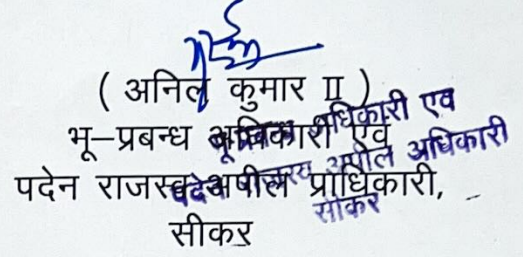 ( अनिल कुमार II )
भू-प्रबन्ध अधिकारी एवं
पदेन राजस्व अपील प्राधिकारी,
सीकर
अधिकारी एव
अपील अधिकारी
सीकर